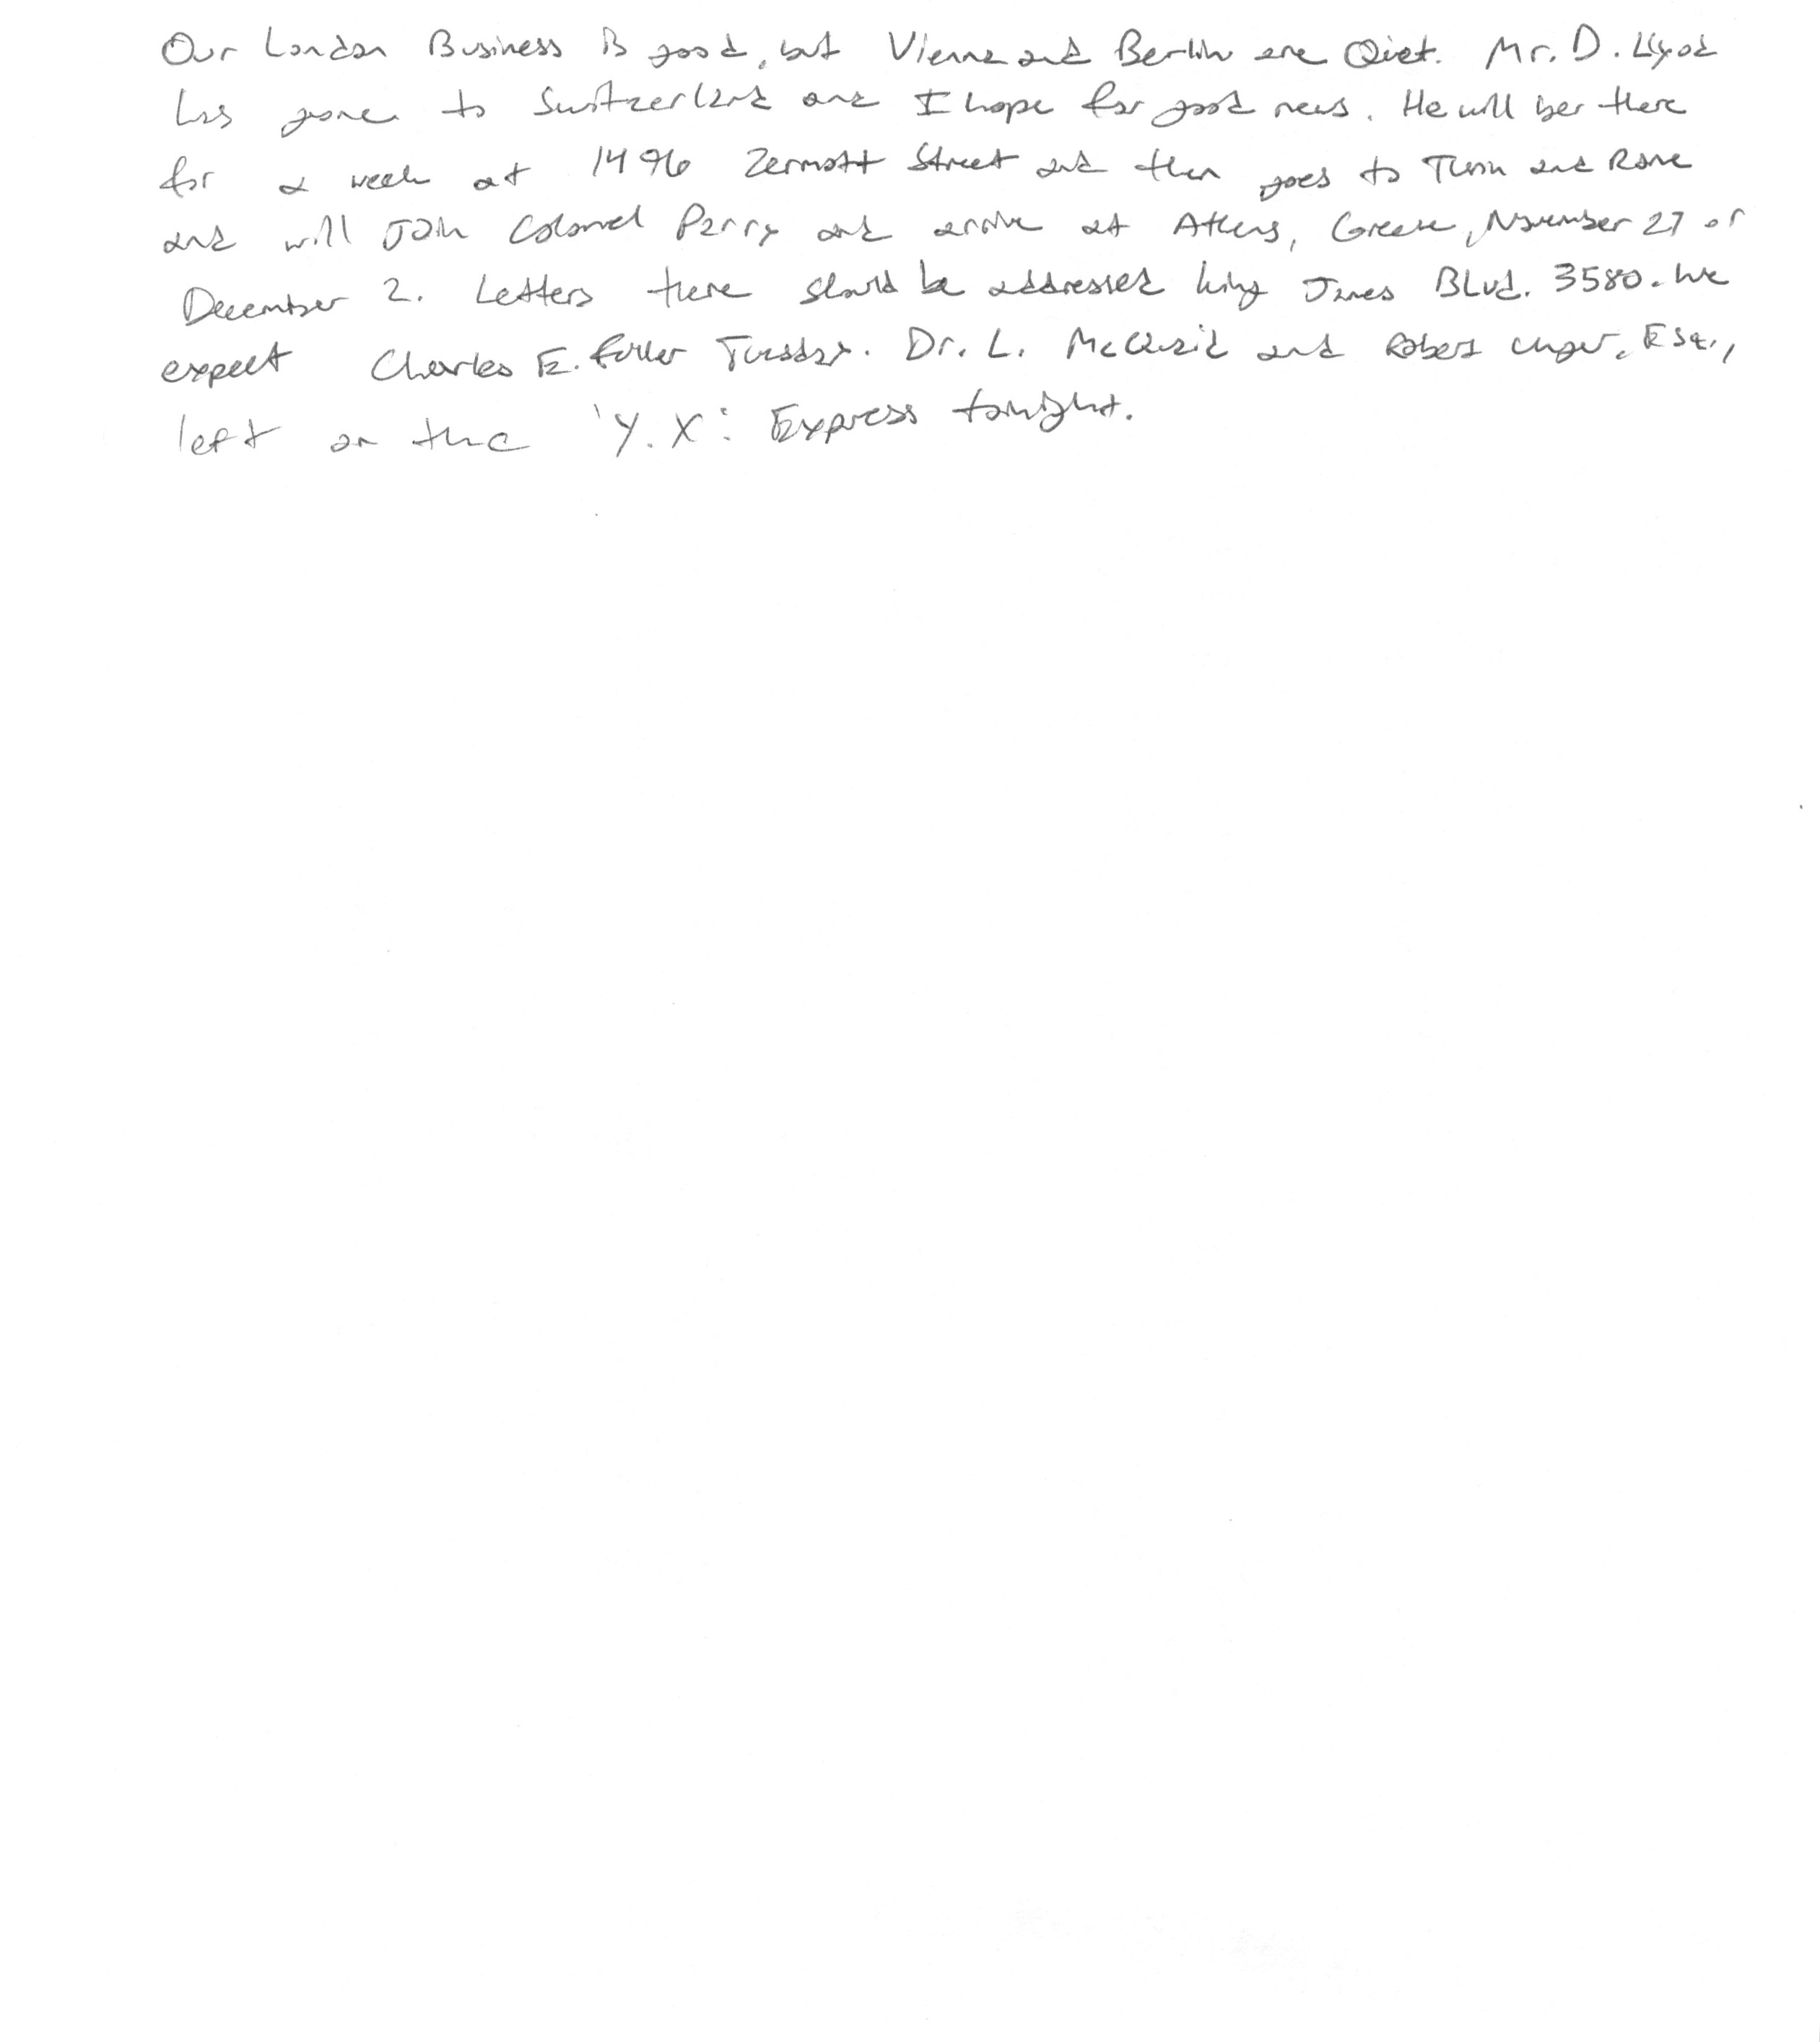 Our London Business is good, but Vienna and Berlin are Qiet. Mr. D. Llyod
has gone to Switzerland and I hope for good news. He will ber there
for a week at 1496 Zermott Street and then goes to Turin and Rome
and will Join Colonel Parry and arrive at Athens, Greece, November 27 or
December 2. Letters there should be addressed King James BLvd. 3580. We
expect Charles E. Fuller Tuesday. Dr. L. McQuaid and Robert Unger, Esq.,
left on the 'Y.X.' Express tonight.